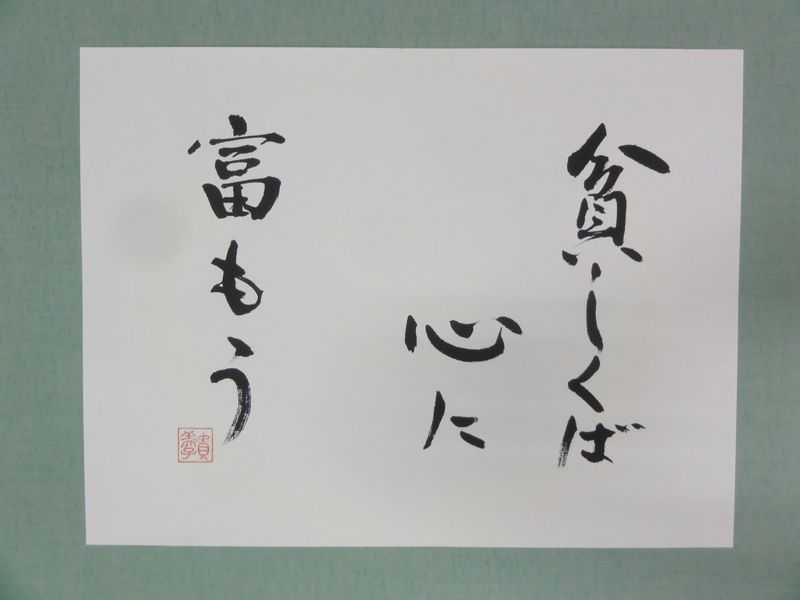 貧しくば
心に
富もう